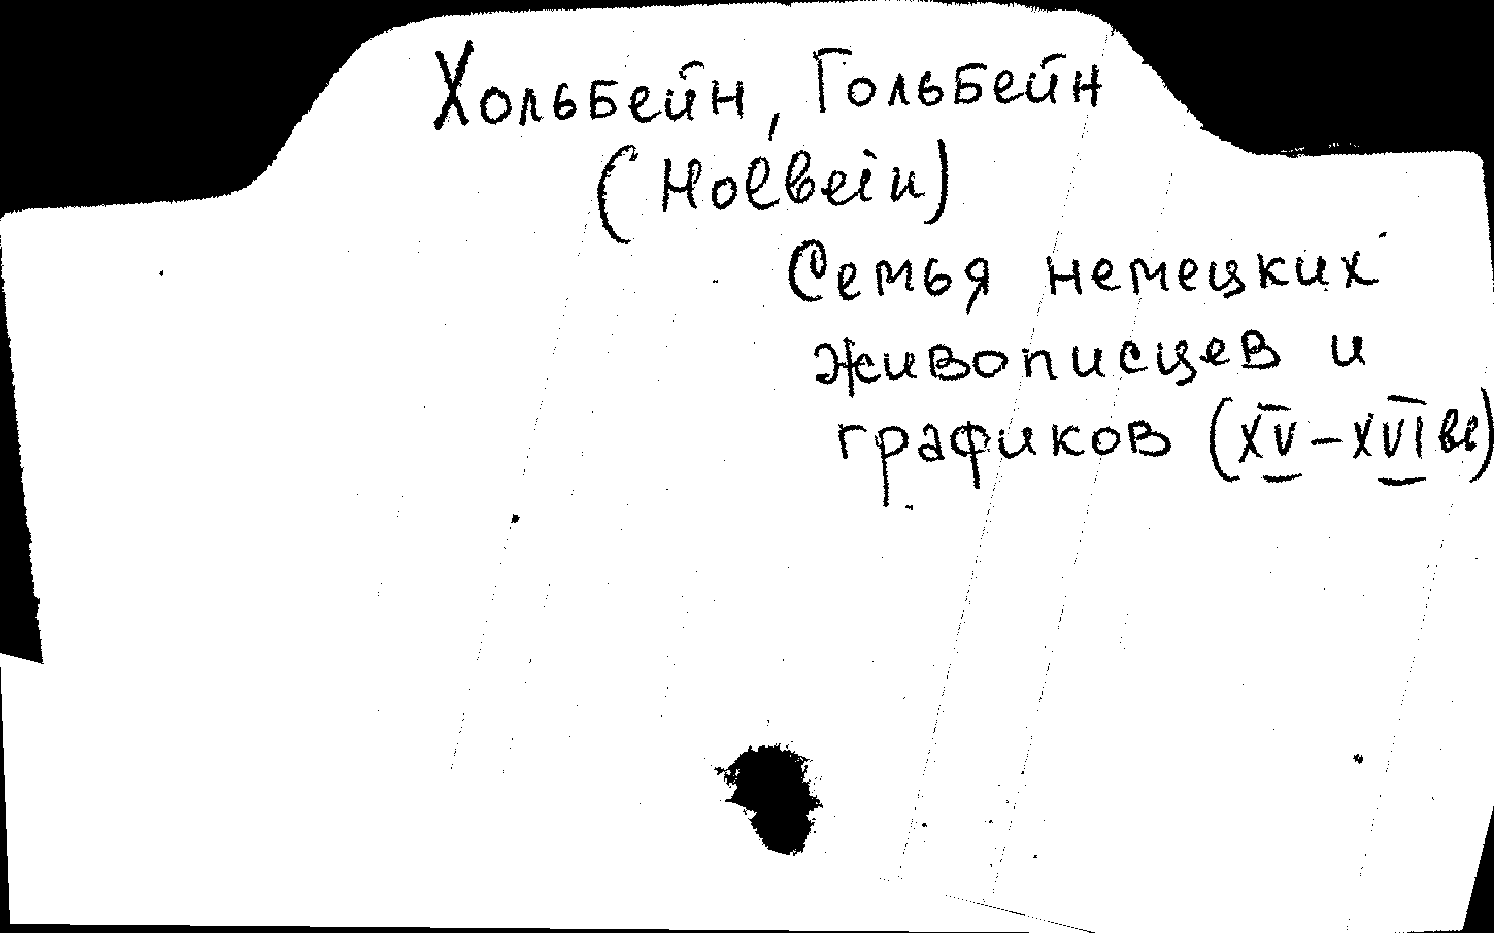 Хольбейн, Гольбейн
(Holbein)
Семья немецких
живописцев и
графиков (XV–XVI вв)